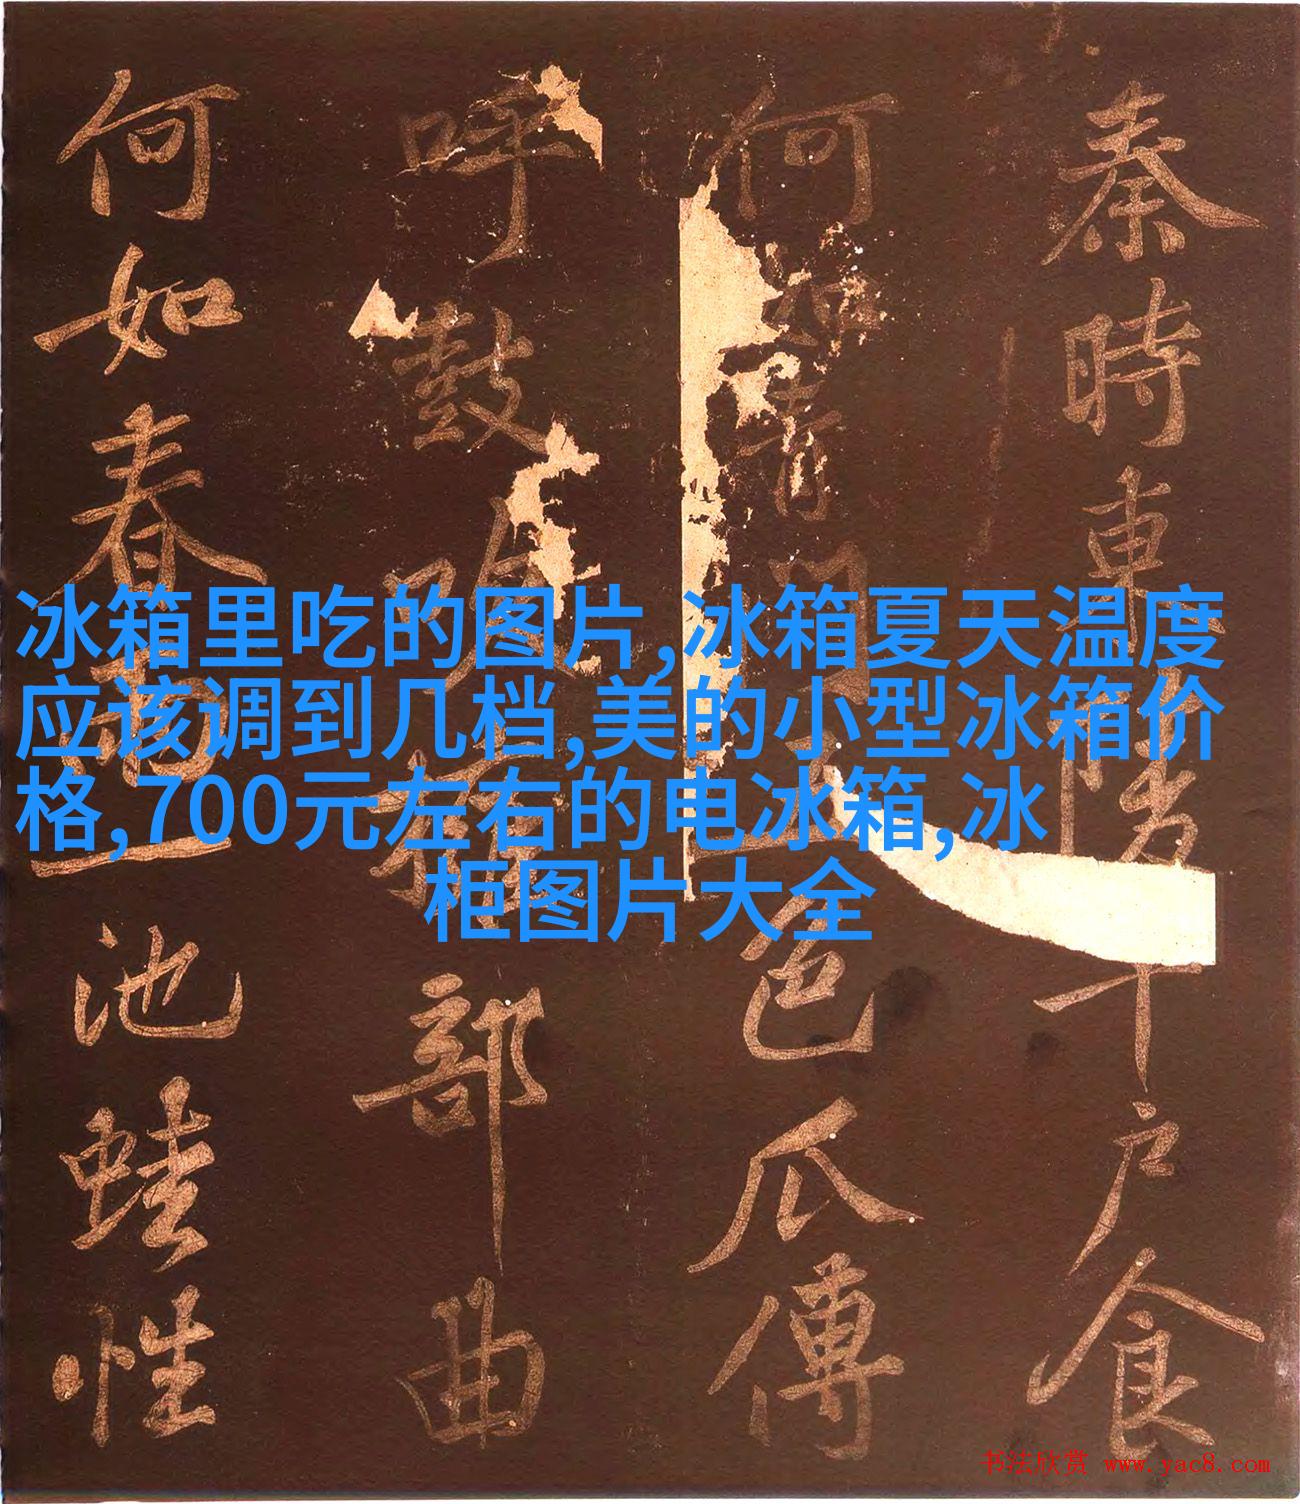 秦時東陵千戶食
何如青門五色瓜傳
呼鼓吹部曲
何如春池蛙性
冰箱里吃的图片,冰箱夏天温度
应该调到几档,美的小型冰箱价
格,700元左右的电冰箱,冰
柜图片大全
书法欣赏 www.yac8.com